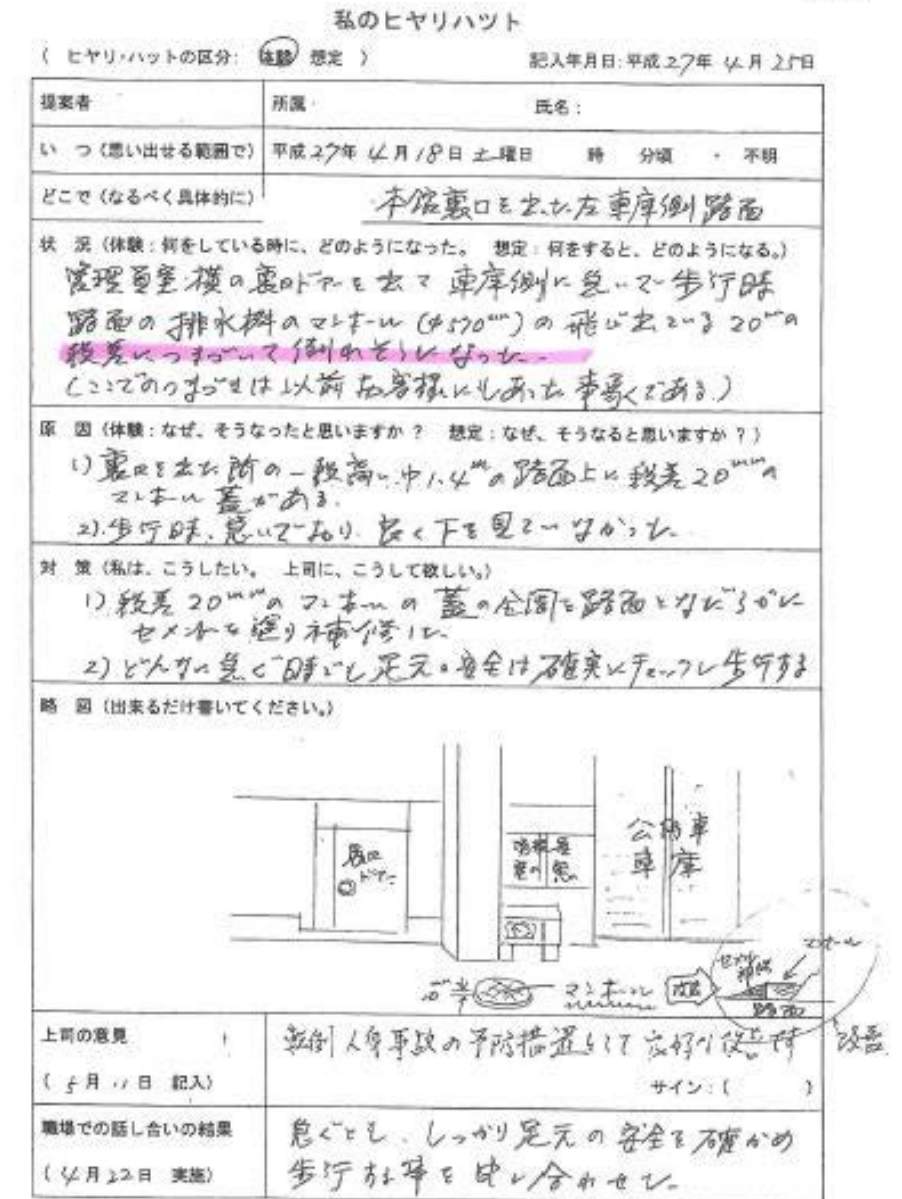 私のヒヤリハツト
( ヒヤリ・ハットの区分: 体験 想定 ) 記入年月日:平成27年4月25日
提案者 所属 氏名:
い つ(思い出せる範囲で) 平成27年4月18日土曜日 時 分頃 ・ 不明
どこで(なるべく具体的に) 本館裏口を出た左車庫側路面
状 況(体験:何をしている時に、どのようになった。 想定:何をすると、どのようになる。)
管理員室横の裏口ドアーを出て車庫側に急いで歩行時
路面の排水桝のマンホール(φ570mm)の飛び出ている20mmの
段差につまづいて倒れそうになった。
(ここでのつまづきは以前お客様にもあった事象である)
原 因(体験:なぜ、そうなったと思いますか? 想定:なぜ、そうなると思いますか?)
1)裏口を出た所の一段高い巾1.4mの路面上に段差20mmの
マンホール蓋がある。
2).歩行時、急いでおり、良く下を見ていなかった。
対 策(私は、こうしたい。 上司に、こうして欲しい。)
1)段差20mmのマンホールの蓋の全周を路面となだらかに
セメントを塗り補修した。
2)どんなに急ぐ時でも足元の安全は確実にチェックし歩行する
略 図(出来るだけ書いてください。)
裏口
ドアー
公用車
車庫
マンホール
セメント
補修
マンホール
改善
路面
改善
上司の意見 転倒人身事故の予防措置として良好な改善です
(5月11日 記入) サイン:( )
職場での話し合いの結果 急ぐとも、しっかり足元の安全を確かめ
(4月22日 実施) 歩行する事を申し合わせた。